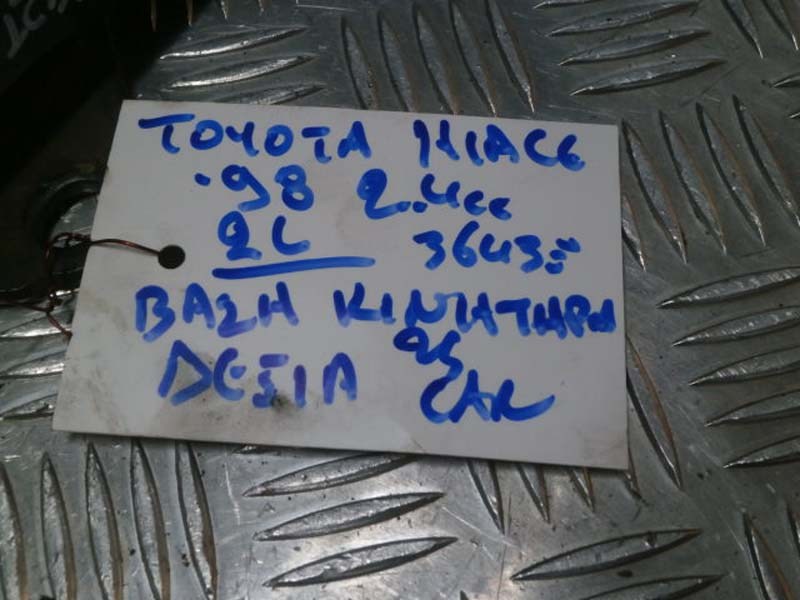 TOYOTA HIACE
'98 2.4cc
2L 3643
ΒΑΣΗ ΚΙΝΗΤΗΡΑ
ΔΕΞΙΑ
CAR